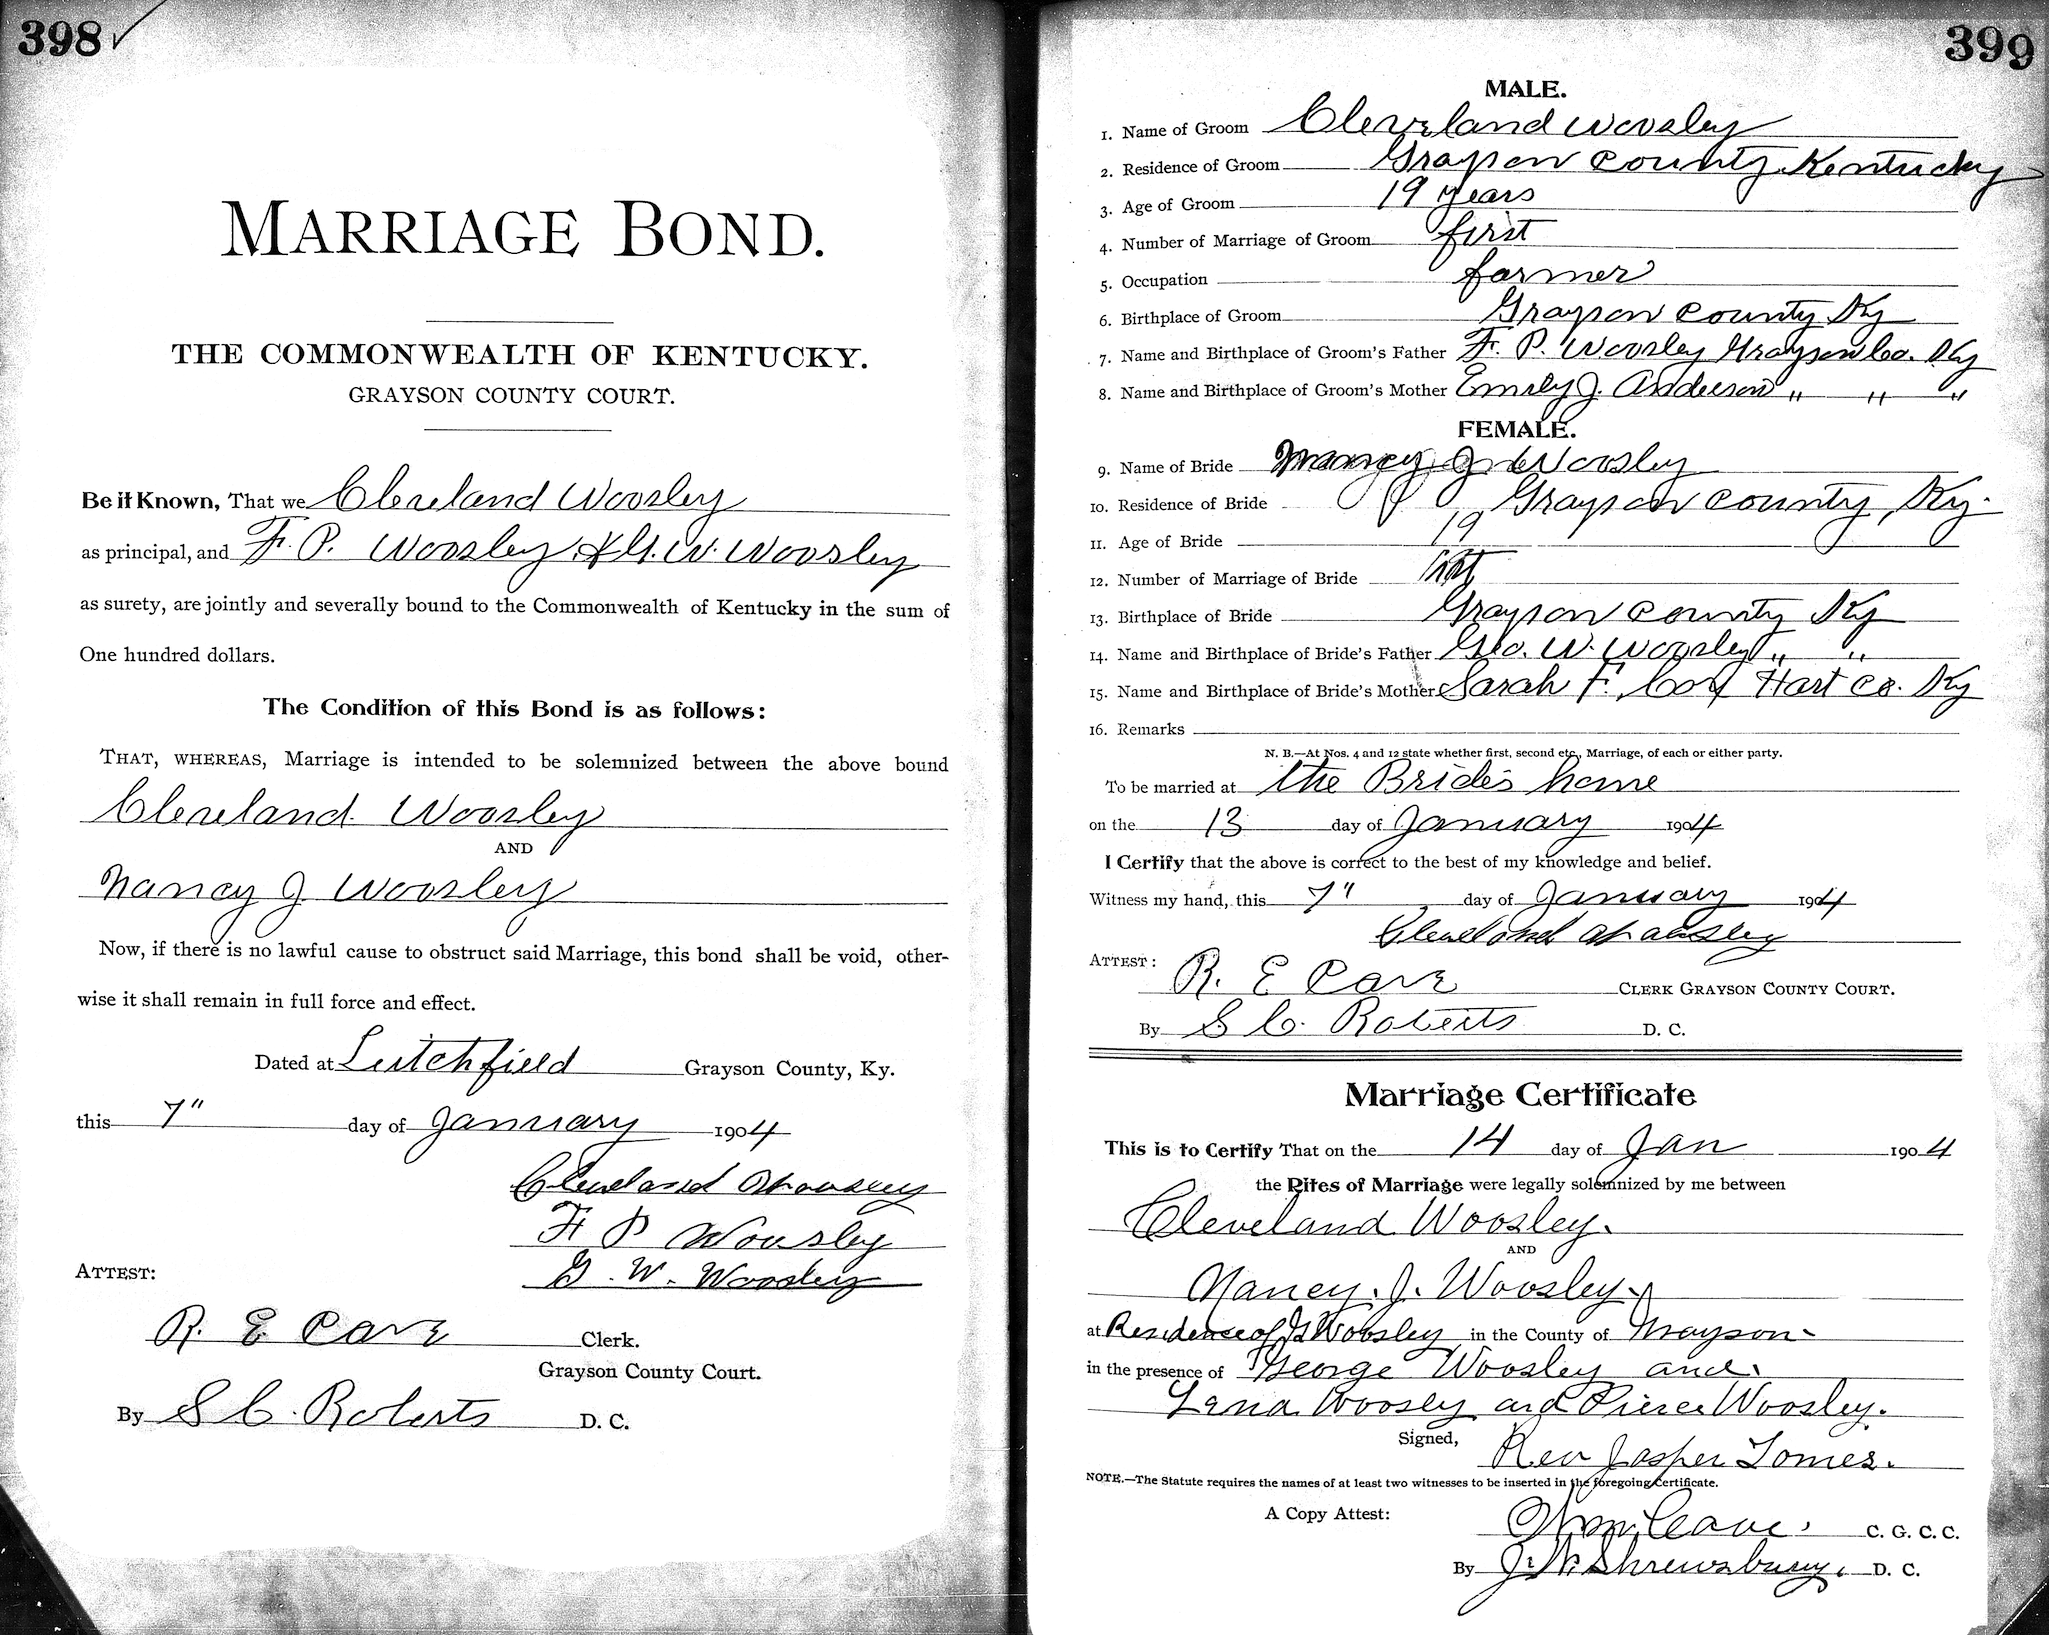 398 ✓
MARRIAGE BOND.
THE COMMONWEALTH OF KENTUCKY.
GRAYSON COUNTY COURT.
Be it Known, That we Cleveland Woosley
as principal, and F. P. Woosley & G. W. Woosley
as surety, are jointly and severally bound to the Commonwealth of Kentucky in the sum of
One hundred dollars.
The Condition of this Bond is as follows:
THAT, WHEREAS, Marriage is intended to be solemnized between the above bound
Cleveland Woosley
AND
Nancy J Woosley
Now, if there is no lawful cause to obstruct said Marriage, this bond shall be void, other-
wise it shall remain in full force and effect.
Dated at Leitchfield Grayson County, Ky.
this 7" day of January 1904
Cleveland Woosley
F P Woosley
G. W. Woosley
ATTEST:
R. E Clerk.
Grayson County Court.
By S C. Roberts D. C.
399
MALE.
1. Name of Groom Cleveland Woosley
2. Residence of Groom Grayson County Kentucky
3. Age of Groom 19 years
4. Number of Marriage of Groom first
5. Occupation farmer
6. Birthplace of Groom Grayson County Ky
7. Name and Birthplace of Groom's Father F. P. Woosley Grayson Co. Ky
8. Name and Birthplace of Groom's Mother Emily J. Anderson " " "
FEMALE.
9. Name of Bride Nancy J Woosley
10. Residence of Bride Grayson County, Ky.
11. Age of Bride 19
12. Number of Marriage of Bride first
13. Birthplace of Bride Grayson County Ky
14. Name and Birthplace of Bride's Father Geo. W. Woosley " "
15. Name and Birthplace of Bride's Mother Sarah F. Cox Hart Co. Ky
16. Remarks
N. B.—At Nos. 4 and 12 state whether first, second etc., Marriage, of each or either party.
To be married at the Bride's home
on the 13 day of January 1904
I Certify that the above is correct to the best of my knowledge and belief.
Witness my hand, this 7" day of January 1904
Cleveland Woosley
ATTEST:
R. E CLERK GRAYSON COUNTY COURT.
By S C. Roberts D. C.
Marriage Certificate
This is to Certify That on the 14 day of Jan 1904
the Rites of Marriage were legally solemnized by me between
Cleveland Woosley.
AND
Nancy. J. Woosley.
at Residence of Woosley in the County of Grayson
in the presence of George Woosley and
Lena Woosley and Pierce Woosley.
Signed, Rev Jasper Tomes.
NOTE.—The Statute requires the names of at least two witnesses to be inserted in the foregoing Certificate.
A Copy Attest:
C. G. C. C.
By J. W. Shrewsbury. D. C.